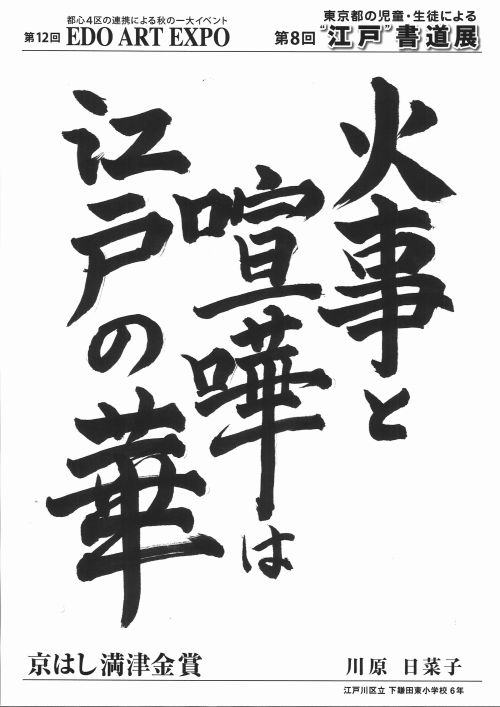 都心4区の連携による秋の一大イベント
第12回 EDO ART EXPO
東京都の児童・生徒による
第8回 “江戸”書道展
火事と
喧嘩は
江戸の華
京はし満津金賞
川原 日菜子
江戸川区立 下鎌田東小学校 6年